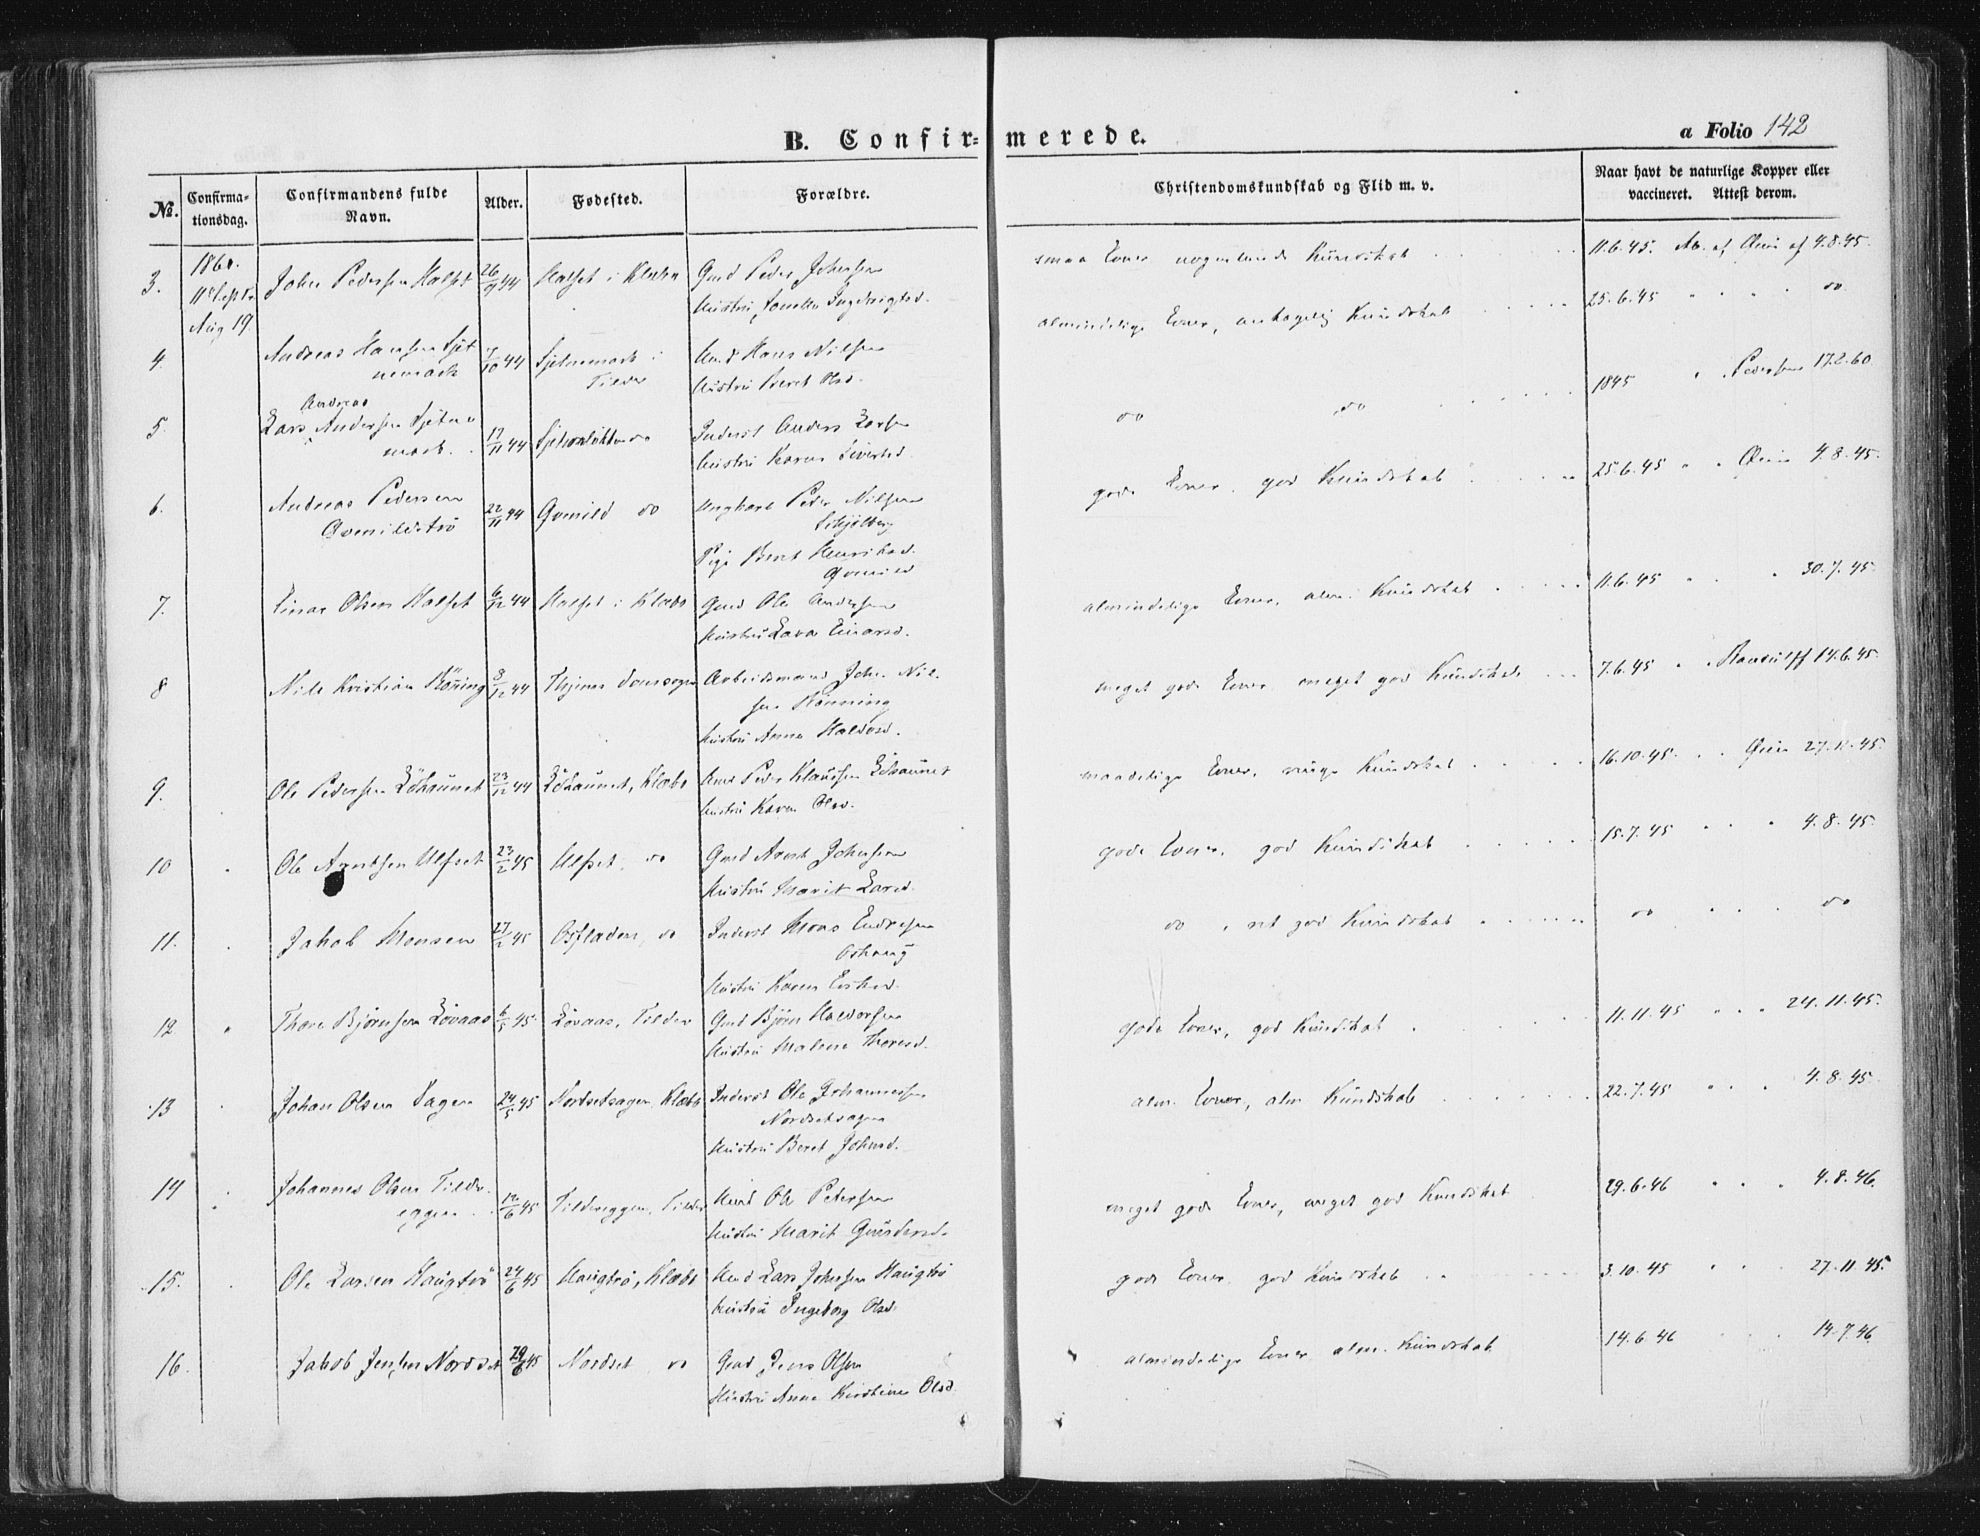 B. Confir=merede.
a Folio 142
№.
Confirma-tionsdag.
Confirmandens fulde Navn.
Alder.
Fødested.
Forældre.
Christendomskundskab og Flid m. v.
Naar havt de naturlige Kopper eller vaccineret. Attest derom.
1860.
3. John Pedersen Halset 26/9 44 Halset i Klæbu Gmd Peder Johnsen
Hustru Ingebrigtsd.
smaa Evner nogenlunde Kundskab 11.6.45. At. af Qvin af 4.8.45.
Aug 19.
4. Andreas Hansen Sjet
nemark 7/10 44 Sjetnemark i
Tiller
Hmd Hans Nilsen
Hustru Beret Olsd.
almindelige Evner, antagelig Kundskab 25.6.45 " " " do
5. Andreas
Lars Andersen Sjetne
mark. 17/11 44 do Inderst Anders Larsen
Hustru Karen Sivertsd.
do do 1845 " Pedersen 17.2.60
6. Andreas Pedersen
Qvenildstrø 22/11 44 Qvenild do Ungkarl Peder Nilsen
Pige Beret Henriksd.
Qvenild
gode Evner, god Kundskab 25.6.45 " " Qvin 4.8.45.
7. Einar Olsen Halset 6/12 44 Halset i Klæbu Gmd Ole Andersen
Hustru Lava Einarsd.
almindelige Evner, alm. Kundskab 11.6.45 " " " 30.7.45.
8 Nils Kristian Rönning 9/12 44 Arbeidsmand John Nil-
sen Rönning
Hustru Anna Haldosd.
meget gode Evner, meget god Kundskab 7.6.45 " " Randulff 14.6.45.
9. Ole Pedersen Löhaunet 23/12 44 Löhaunet, Klæbu Hmd Peder Klausen Löhaunet
Hustru Karen Olsd.
maadelige Evner, ringe Kundskab 16.10.45. " " Qvin 27.11.45.
10 Ole Arntsen Ulsset 23/2 45 Ulsset, do Gmd Arnt Johnsen
Hustru Marit Larsd.
gode Evner, god Kundskab 15.7.45 " " " 4.8.45.
11. Jakob Monsen 27/2 45 Osfladen, do Inderst Mons Endresen
Oshaug
Hustru Karen Eriksd.
do , ret god Kundskab do " " do
12 " Thore Björnsen Lövaas 6/5 45 Lövaas, Tiller Gmd Björn Haldorsen
Hustru Malene Thoresd.
gode Evner, god Kundskab 11.11.45 " " " 24.11.45.
13 Johan Olsen Sagen 24/5 45 Nordsetsagen, Klæbu Inderst Ole Johannesen
Nordsetsagen
Hustru Beret Johnsd.
alm. Evner, alm Kundskab 22.7.45 " " " 4.8.45.
14 Johannes Olsen Tiller-
eggen 12/6 45 Tillereggen, Tiller Hmd Ole Petersen
Hustru Marit Gundersd.
meget gode Evner, meget god Kundskab 29.6.46 " " " 4.8.46.
15. Ole Larsen Haugtrø 24/6 45 Haugtrø, Klæbu Hmd Lars Johnsen Haugtrø
Hustru Ingeborg Olsd.
gode Evner, god Kundskab 3.10.45 " " 27.11.45.
16. Jakob Jensen Nordset 29/6 45 Nordset do Gmd Jens Olsen
Hustru Anne Kirstine Olsd.
almindelige Evner alm. Kundskab 14.6.46 14.7.46.